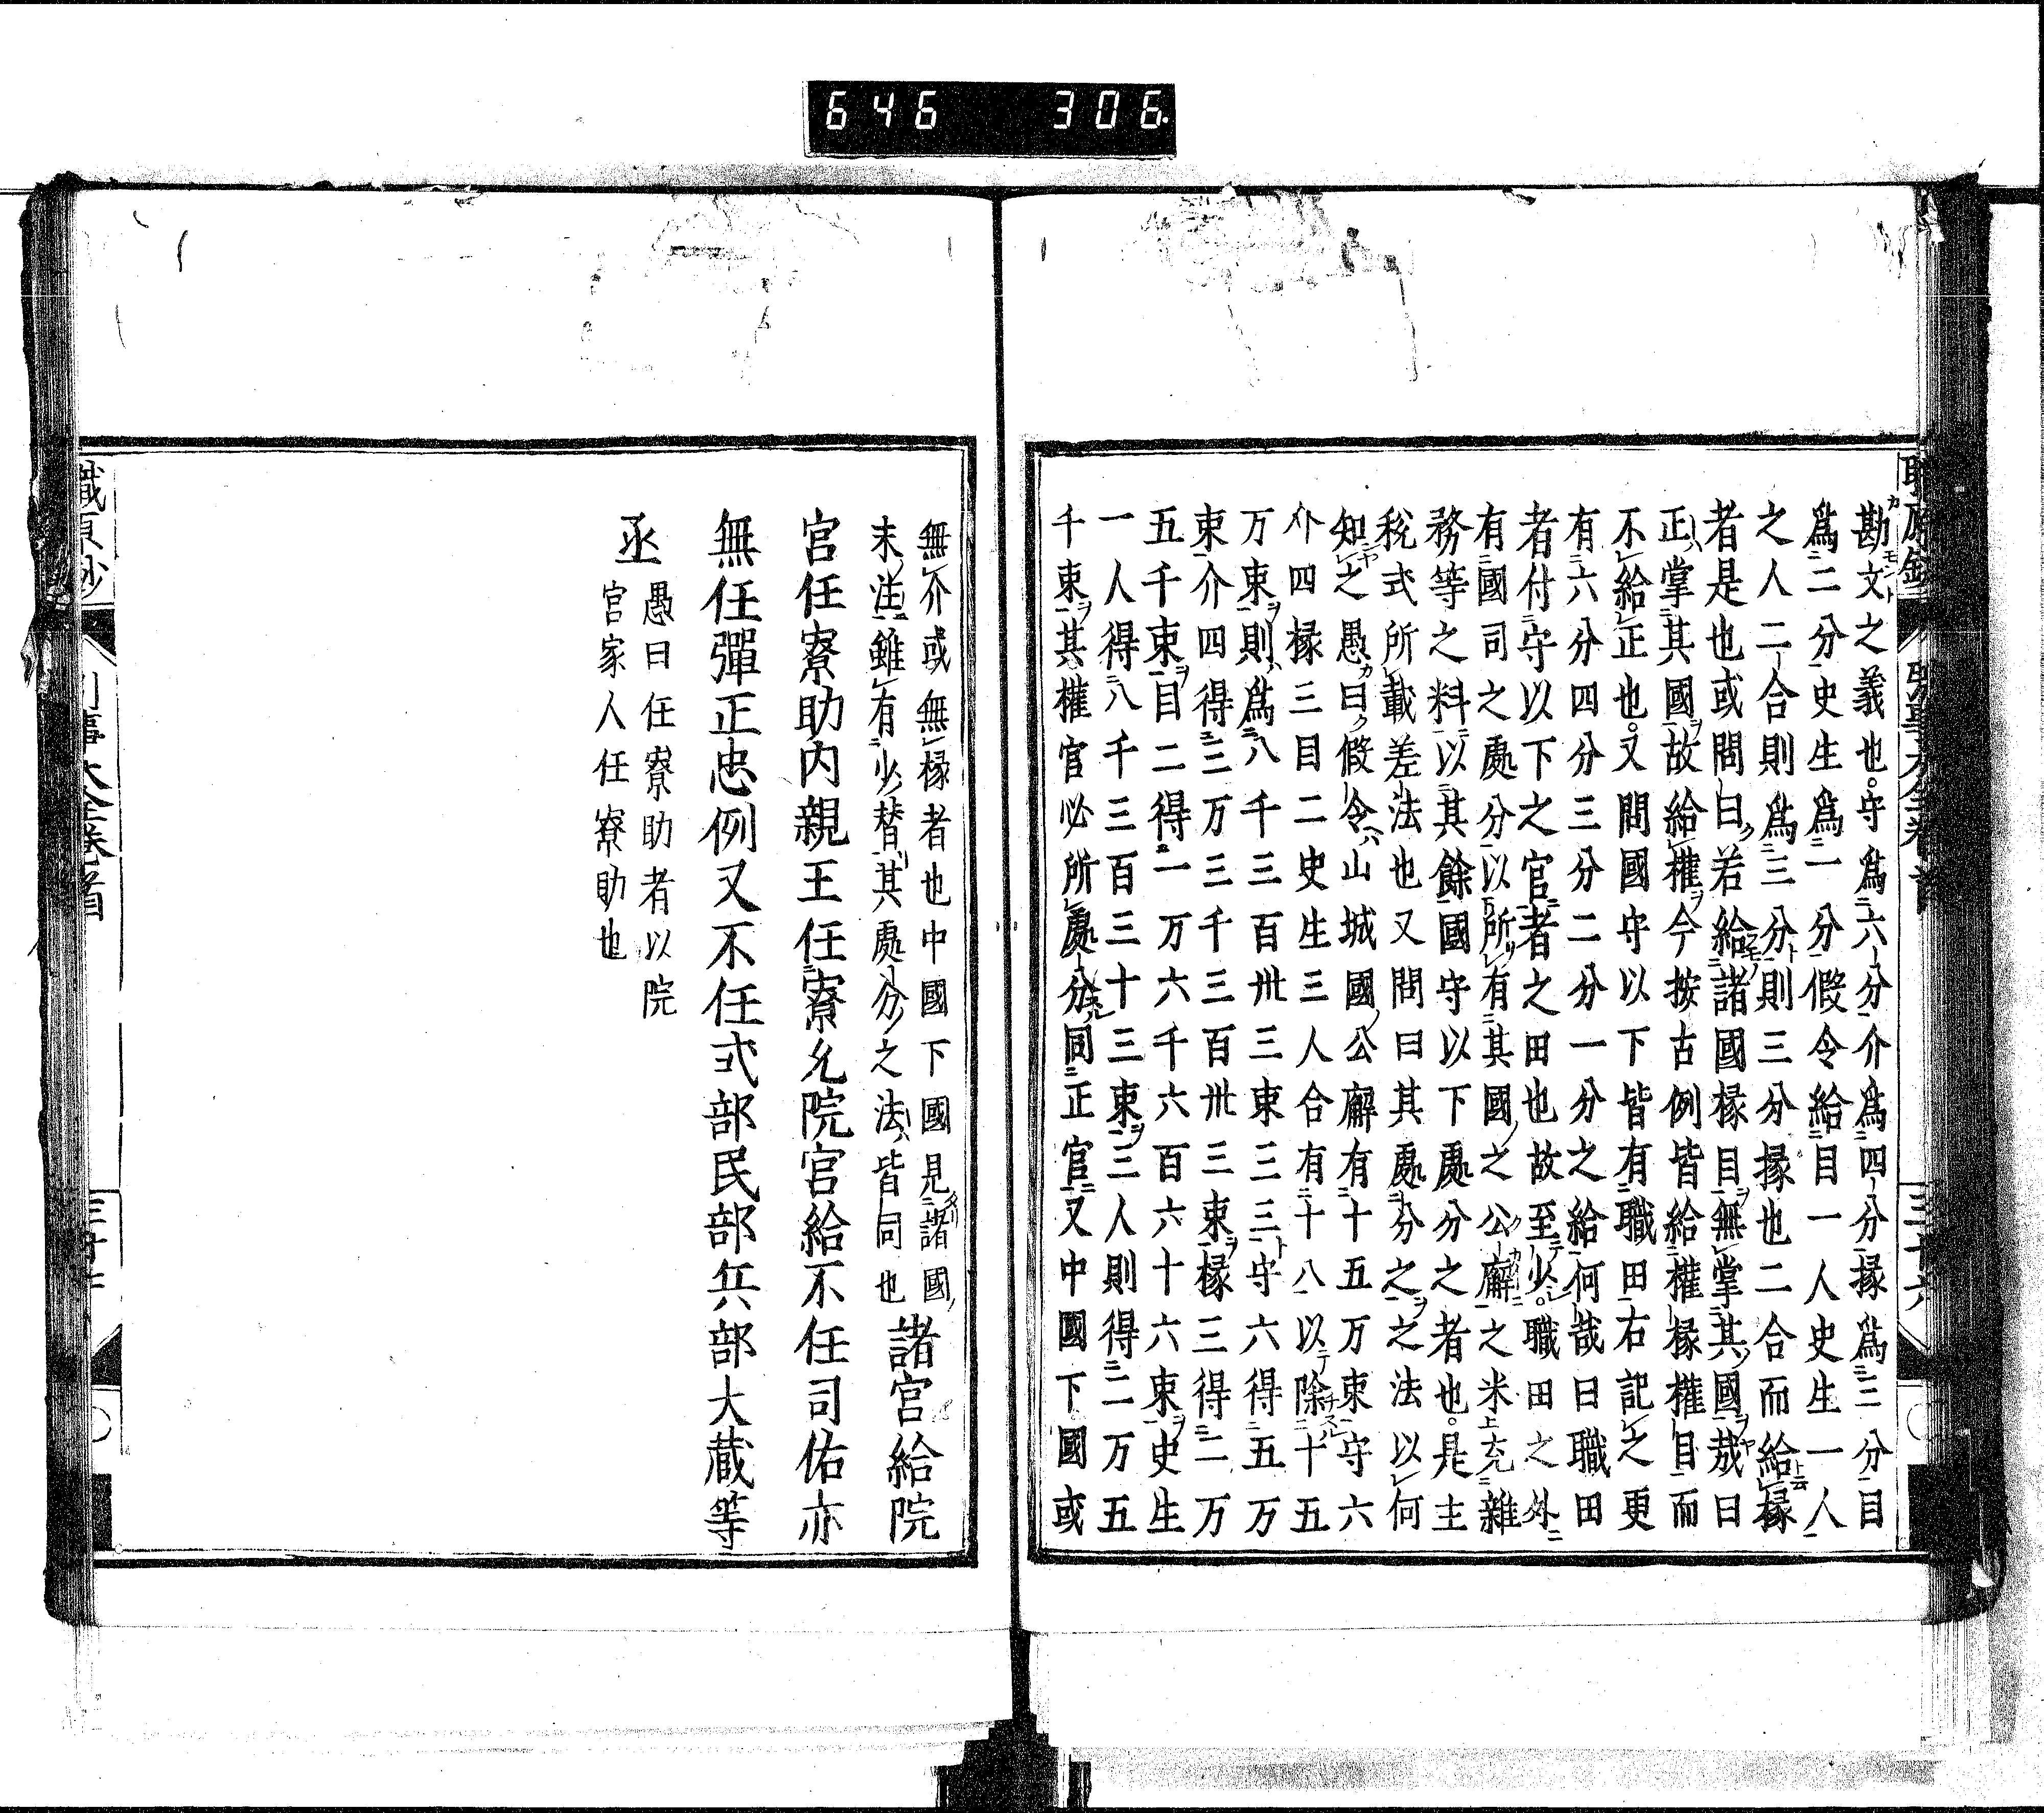 646 306.
勘文之義也。守爲六分介爲四分掾爲三分目
爲二分史生爲一分假令給目一人史生一人
之人二合則爲三分則三分掾也二合而給掾
者是也或問曰若給諸國掾目無掌其國㢤曰
正掌其國故給權今按古例皆給權掾權目而
不給正也。又問國守以下皆有職田右記之更
有六分四分三分二分一分之給何哉曰職田
者付守以下之官者之田也故至少。職田之外
有國司之處分以所有其國之公廨之米充雜
務等之料以其餘國守以下處分之者也。是主
税式所載差法也又問曰其處分之之法以何
知之愚曰假令山城國公廨有十五万束守六
介四掾三目二史生三人合有十八以除十五
万束則爲八千三百卅三束三三守六得五万
束介四得三万三千三百卅三束掾三得二万
五千束目二得一万六千六百六十六束史生
一人得八千三百三十三束三人則得二万五
千束其權官必所處分同正官又中國下國或
三十六
無介或無掾者也中國下國見諸國
末注雖有少替其處分之法皆同也
諸宮給院
宮任寮助内親王任寮允院宮給不任司佑亦
無任彈正忠例又不任式部民部兵部大蔵等
丞
愚曰任寮助者以院
宮家人任寮助也